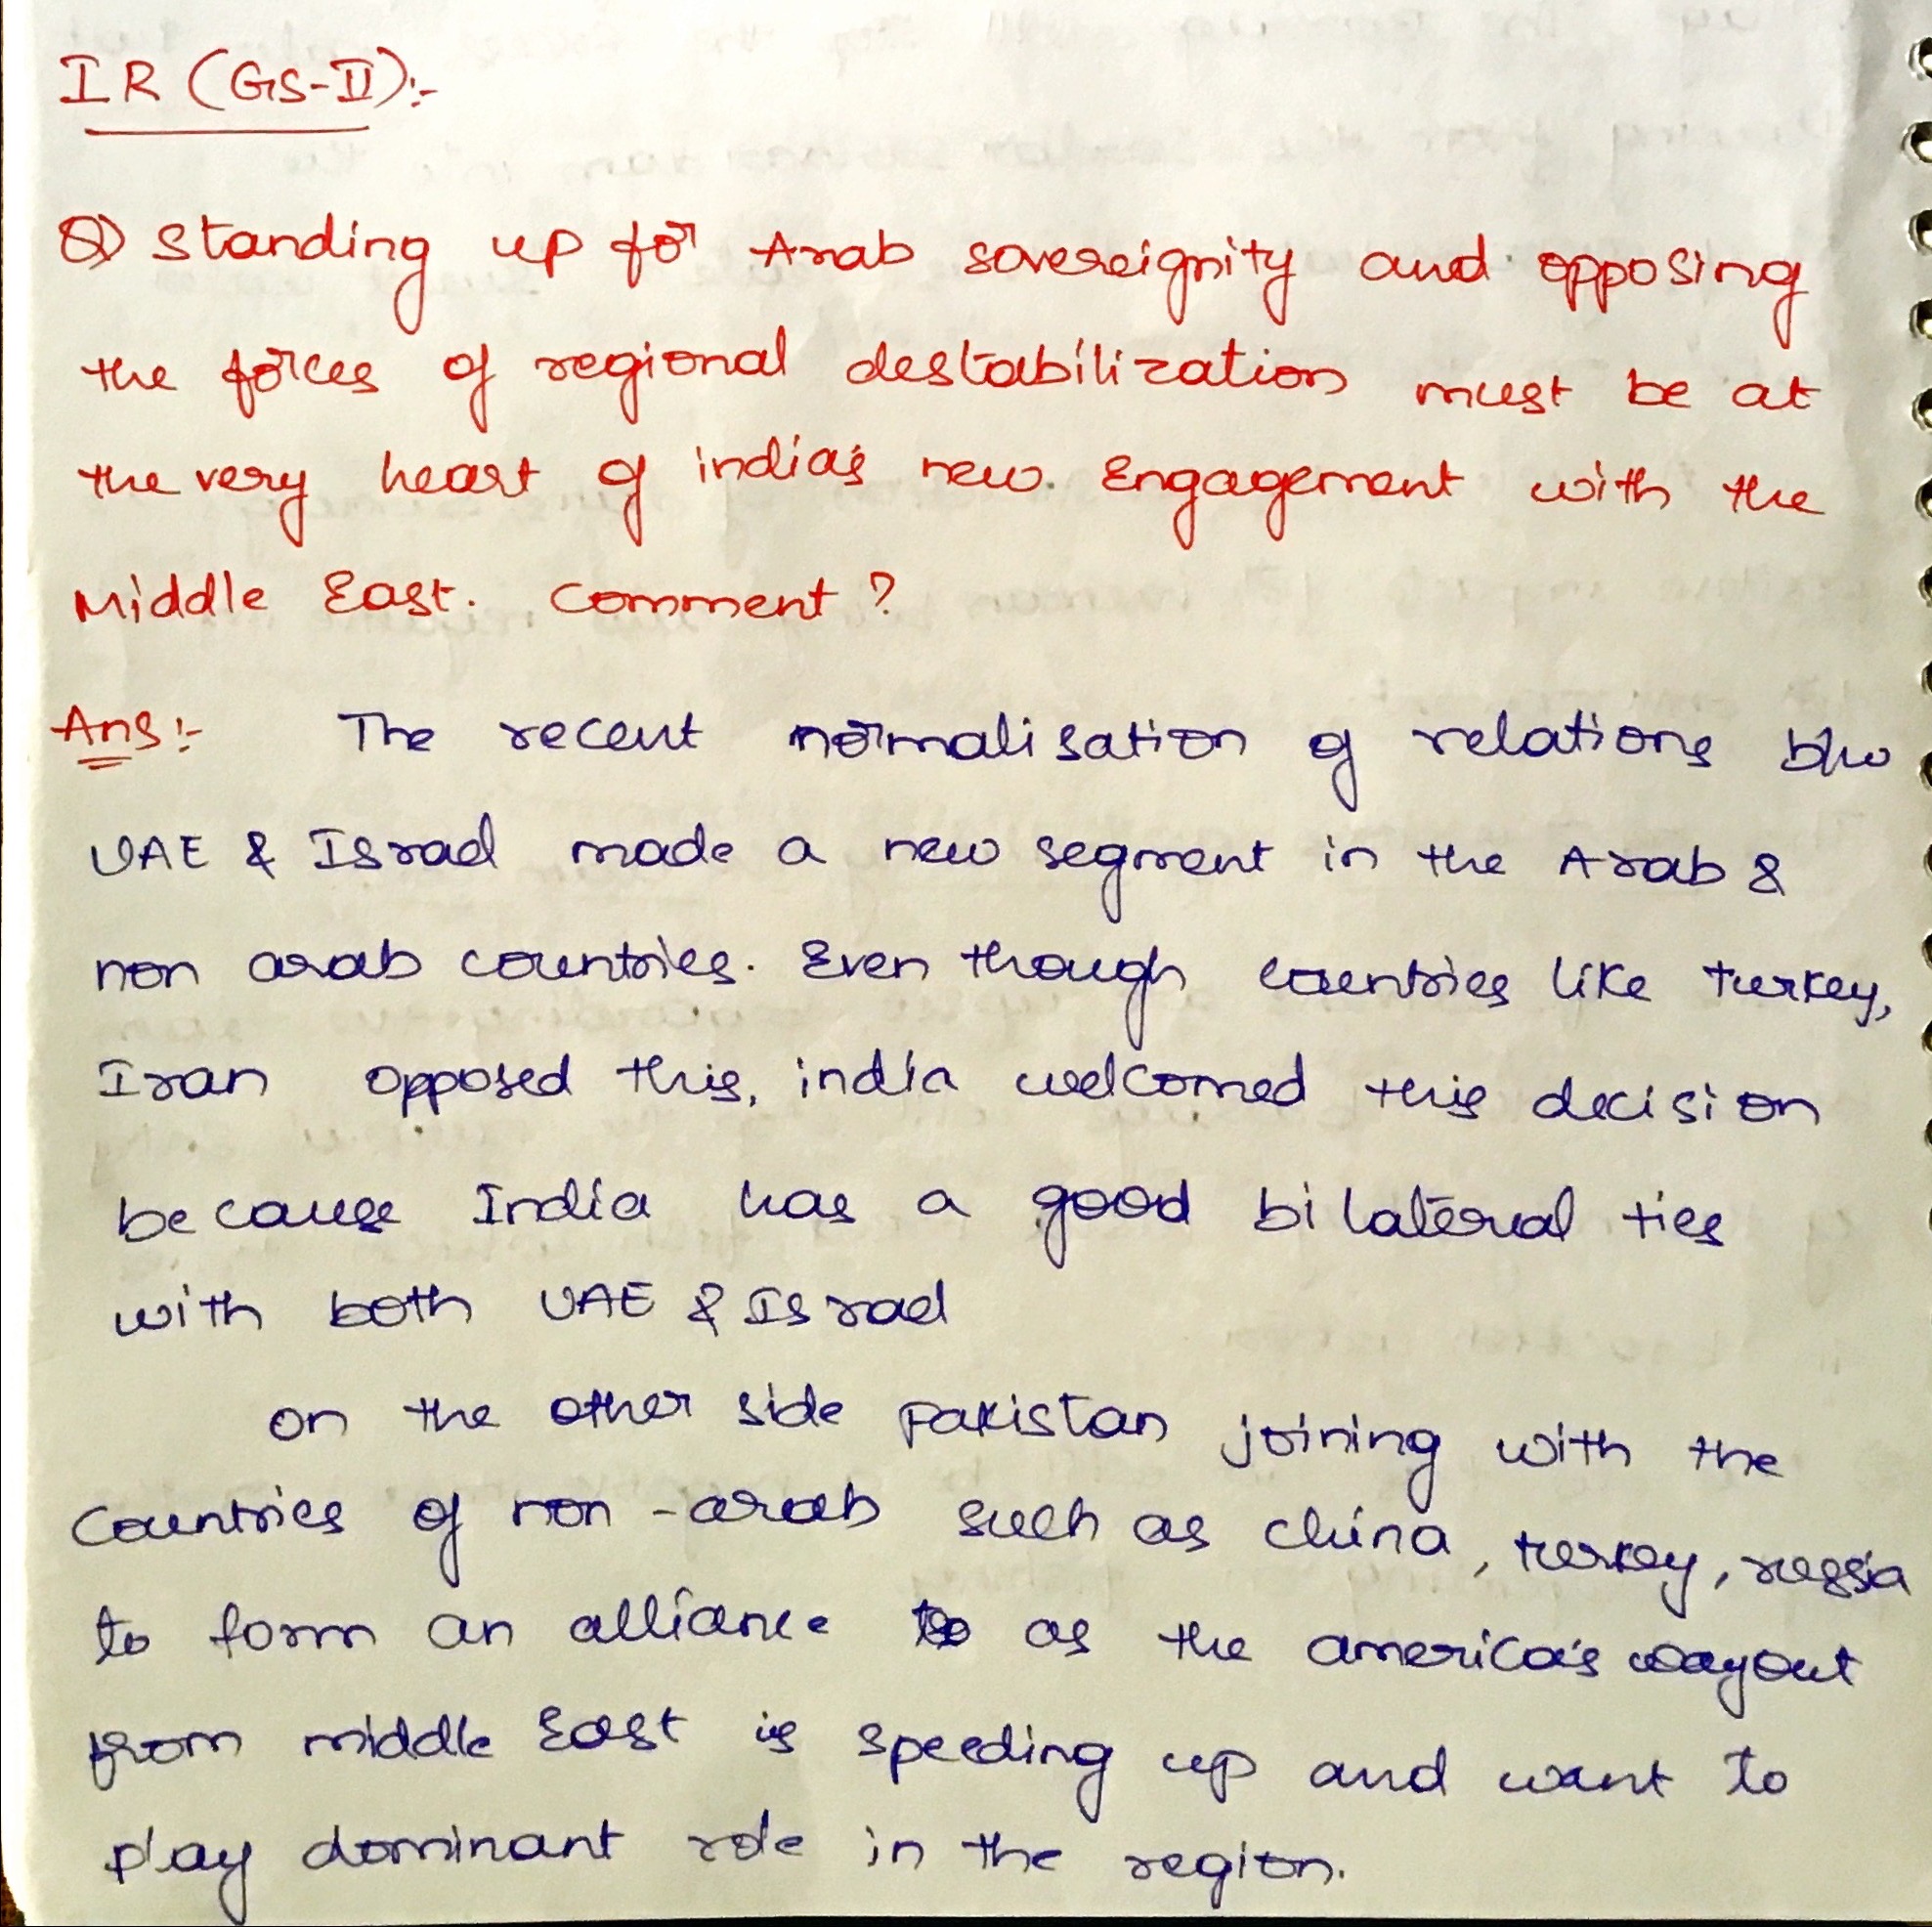 IR (GS-II):-
Q) Standing up for Arab sovereignity and opposing
the forces of regional destabilization must be at
the very heart of india's new Engagement with the
Middle East. Comment?
Ans:- The recent normalisation of relations b/w
UAE & Israel made a new segment in the Arab &
non arab countries. Even though countries like turkey,
Iran opposed this, india welcomed this decision
because India has a good bilateral ties
with both UAE & Israel
on the other side pakistan joining with the
Countries of non-arab such as china, turkey, russia
to form an alliance as the america's wayout
from middle East is speeding up and want to
play dominant role in the region.